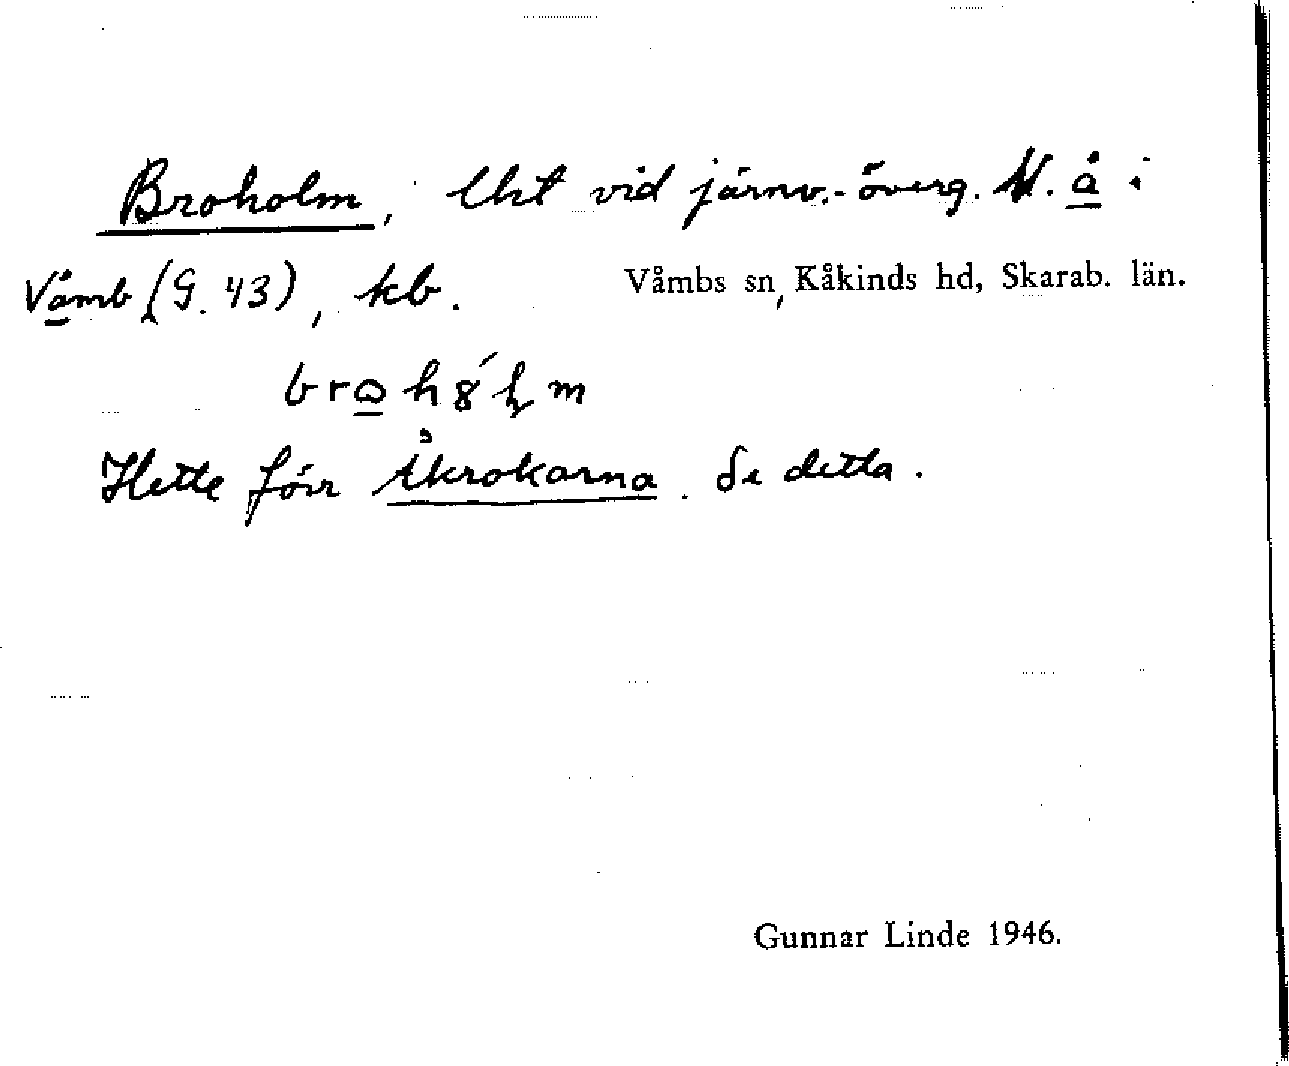 Broholm, lht vid järnv.-överg. N. å i
Våmb (G. 43), kb. Våmbs sn, Kåkinds hd, Skarab. län.
Hette förr Åkrokarna. Se detta.
Gunnar Linde 1946.